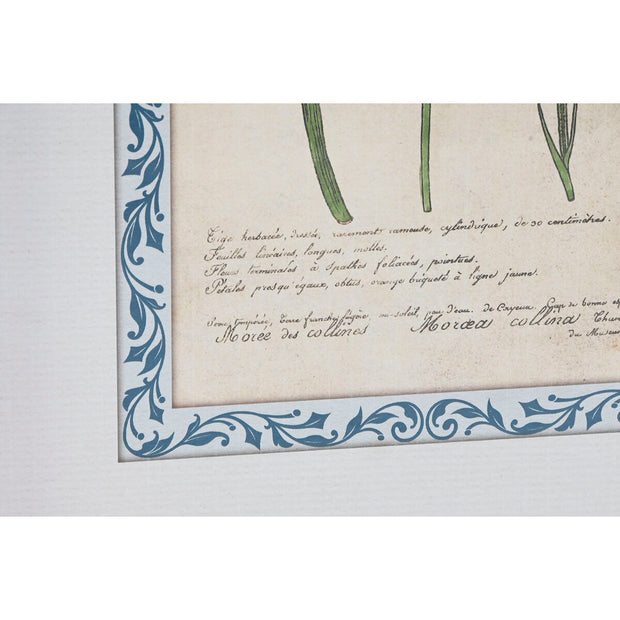 Tige herbacée, dressée, rarement rameuse, cylindrique, de 30 centimètres.
Feuilles linéaires, longues, molles.
Fleurs terminales, à spathes foliacés, pointues.
Pétales presqu'égaux, obtus, orange briqueté à ligne jaune.
Serre tempérée, Terre franche légère, au soleil, peu d'eau. de Cayeux Cap de bonne
Morée des collines Moræa collina Thun
du Museum